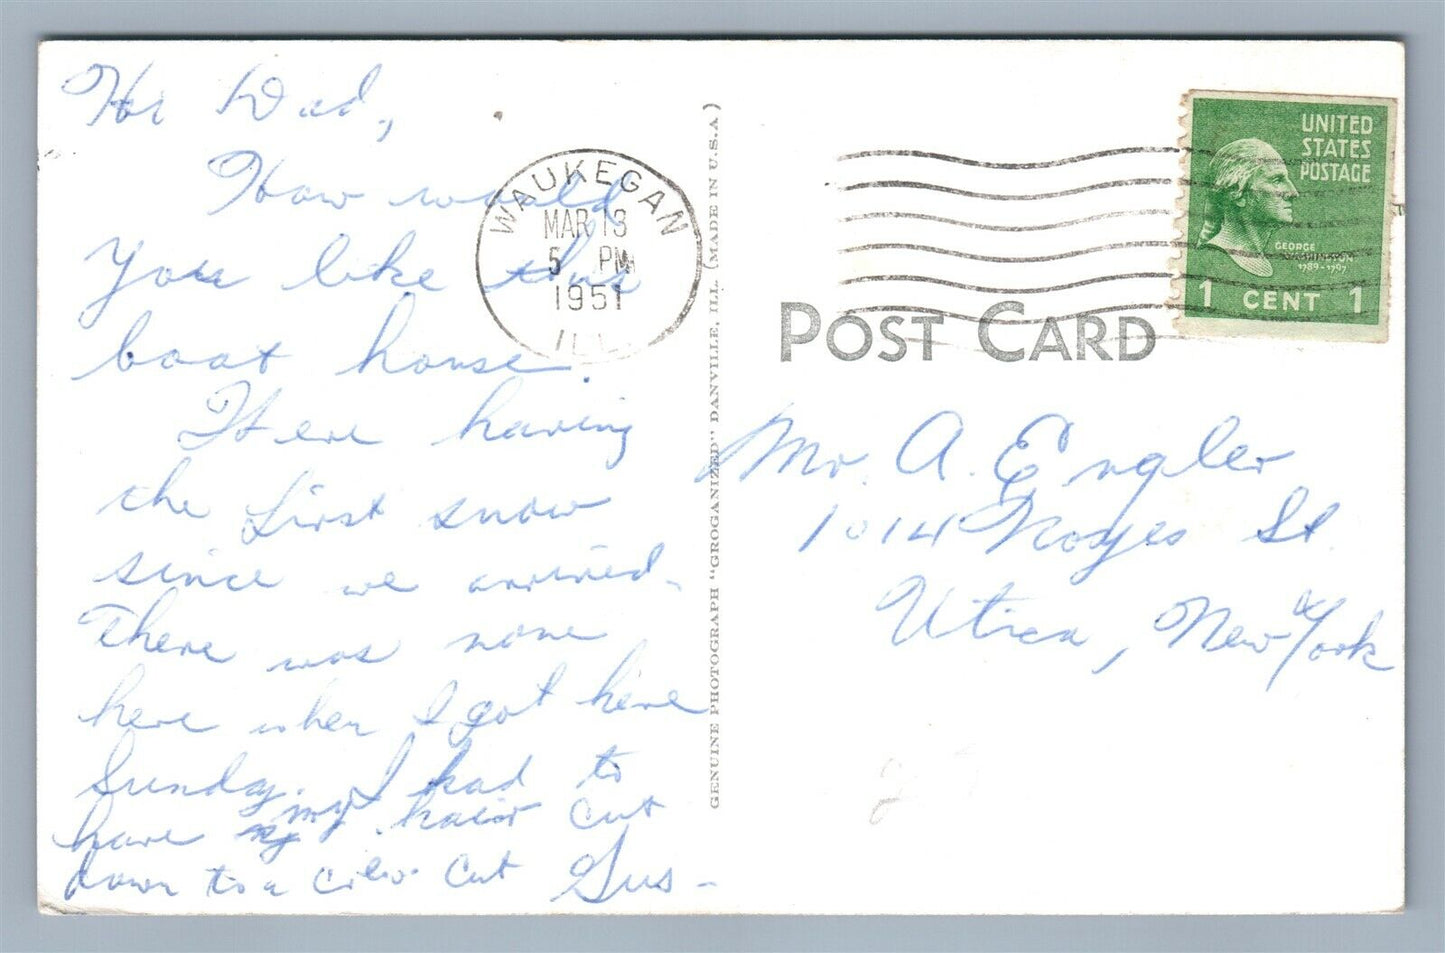 Hi Dad,
How would
you like this
boat house.
Were having
the first snow
since we arrived.
There was none
here when I got here
Sunday. I had to
have my hair cut
down to a crew cut Gus-
GENUINE PHOTOGRAPH "GROGANIZED" DANVILLE, ILL. (MADE IN U.S.A)
WAUKEGAN
MAR 13
5 PM
1951
ILL.
UNITED
STATES
POSTAGE
GEORGE
WASHINGTON
1789-1797
1 CENT 1
POST CARD
Mr. A. Engler
1014 Noyes St.
Utica, New York